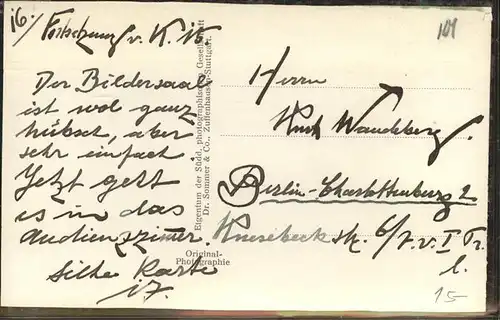 16./ Fortsetzung v. K. 15.
Der Bildersaal
ist wol ganz
hübsch, aber
sehr einfach
Jetzt geht
es in das
Audienzzimmer.
Siehe Karte
17.
Eigentum der Südd. photographischen Gesellschaft
Dr. Sommer & Co., Zuffenhausen-Stuttgart.
Original-
Photographie
101
Herrn
Kurt Wandeberg.
Berlin-Charlottenburg 2
Knesebeck str. 6/7. v. I Tr.
l.
15-